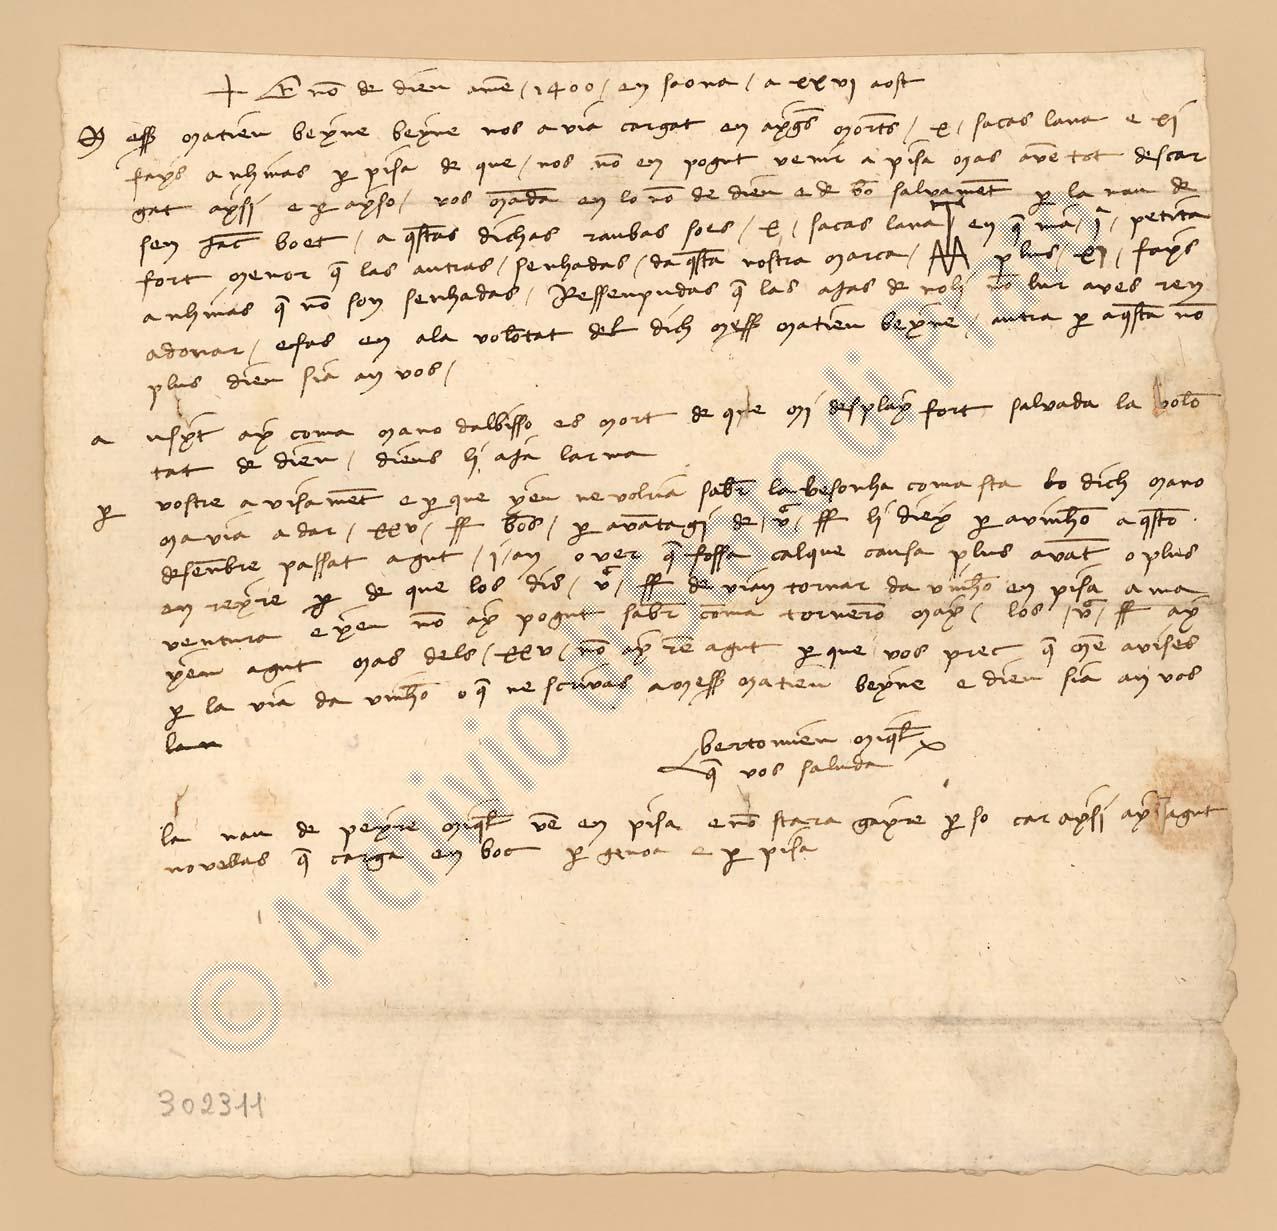 + En nō de dieu amē / 1400 / en saona / a xxvi aost
M ess̄ matieu beyne beyne nos avia cargat en aygs mortᷤ / x / sacas lana e xi
fays anhinas p pisa de que / nos nō en pogut venir a pisa mas avē tot descar
gat ayssi e p ayso / vos māda en lo nō de dieu e de bō salvamēt p la nau de
sen Jac̄ boet / aqstas dichas raubas sors / x / sacas lana en q̄ nia / j̊ / petita
fort menor q̄ las autras / senhadas / da qsta nostra marca / p lus / xj / fays
anhinas q̄ nō son senhadas / Ressenpudas q̄ las ajas de noli nō lur aves ren
adonar / e fas en ala volōtat del dich mess̄ matieu beyne / autra p aqsta nō
plus dieu sia an vos /
a usprt ay coma mano dalbisso es mort de que mi desplay fort salvada la volō
tat de dieu / dieus li aja larma
p vostre avisamēt e p que yeu ne volria sabr̄ la besonha coma sta lo dich mano
mavia a dar / xxv / ff bos / p avātagi de / v̊ / ff li diey p avinhō aqsto
desenbre passat agut / j / an over q̄ fossa calque causa plus avāt o plus
en reyre p de que los dis / v̊ / ff devian tornar da vinhō en pisa a ma
ventura e yeu nō ay pogut sabr̄ coma tornerō may / los / v̊ / ff ay
yeu agut mas dels / xxv / nō ay rē agut p que vos prec q̄ mē avises
p la via da vinhō o q̄ ne scrivas a mess̄ matieu beyne e dieu sia an vos
lan
bertomieu miql
q̄ vos saluda
la nau de peyre miql vē en pisa e nō stara gayre p so car ayssi ay agut
novellas q̄ carga en boc p genoa e p pisa
302311
© Archivio di Stato di Prato